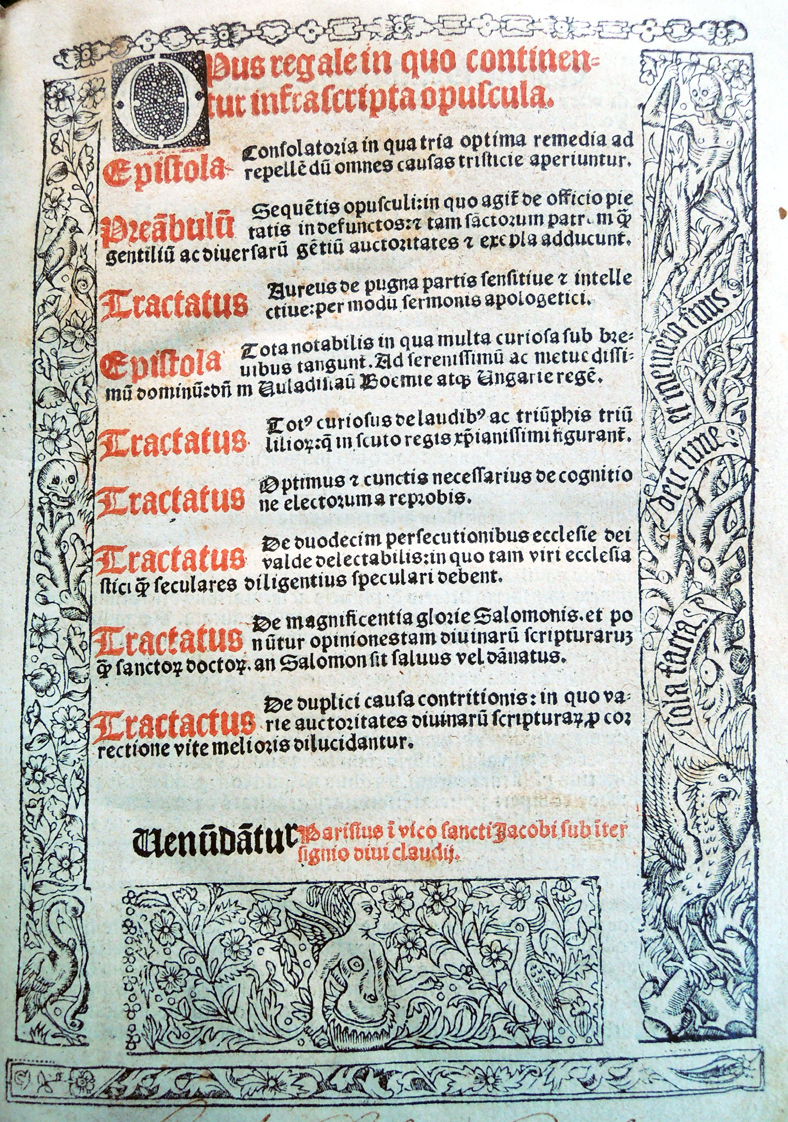 Opus regale in quo continen=
tur infrascripta opuscula.
Epistola Consolatoria in qua tria optima remedia ad
repellẽdũ omnes causas tristicie aperiuntur.
Preãbulũ Sequẽtis opusculi: in quo agiť de officio pie
tatis in defunctos: ⁊ tam sãctorum patrum ꝙ̃
gentiliũ ac diuersarũ gẽtiũ auctoritates ⁊ exẽpla adducunť.
Tractatus Aureus de pugna partis sensitiue ⁊ intelle
ctiue: per modũ sermonis apologetici.
Epistola Tota notabilis in qua multa curiosa sub bre-
uibus tangunť. Ad serenissimũ ac metuẽdissi-
mũ dominũ: dñm Uuladislaũ Boemie atqꝫ Ungarie regẽ.
Tractatus Totꝰ curiosus de laudibꝰ ac triũphis triũ
lilioꝝ: q̃ in scuto regis xp̃ianissimi figuranť.
Tractatus Optimus ⁊ cunctis necessarius de cognitio
ne electorum a reprobis.
Tractatus De duodecim persecutionibus ecclesie dei
valde delectabilis: in quo tam viri ecclesia
stici ꝙ̃ seculares diligentius speculari debent.
Tractatus De magnificentia glorie Salomonis. et po
nũtur opiniones tam diuinarũ scripturarũꝫ
ꝙ̃ sanctoꝝ doctoꝝ. an Salomon sit saluus vel dãnatus.
Tractactus De duplici causa contritionis: in quo va-
rie auctoritates diuinarũ scripturaꝝ, ꝓ cor
rectione vite melioris dilucidantur.
Uenũdãtur Parisius ĩ vico sancti Jacobi sub ĩter
signio diui claudij.
et memẽto finis.
detur time
sola fatra